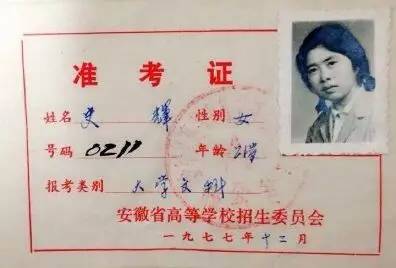 准考证
姓名 史辉 性别 女
号码 0211 年龄 21岁
报考类别 大学文科
安徽省高等学校招生委员会
一九七七年十二月